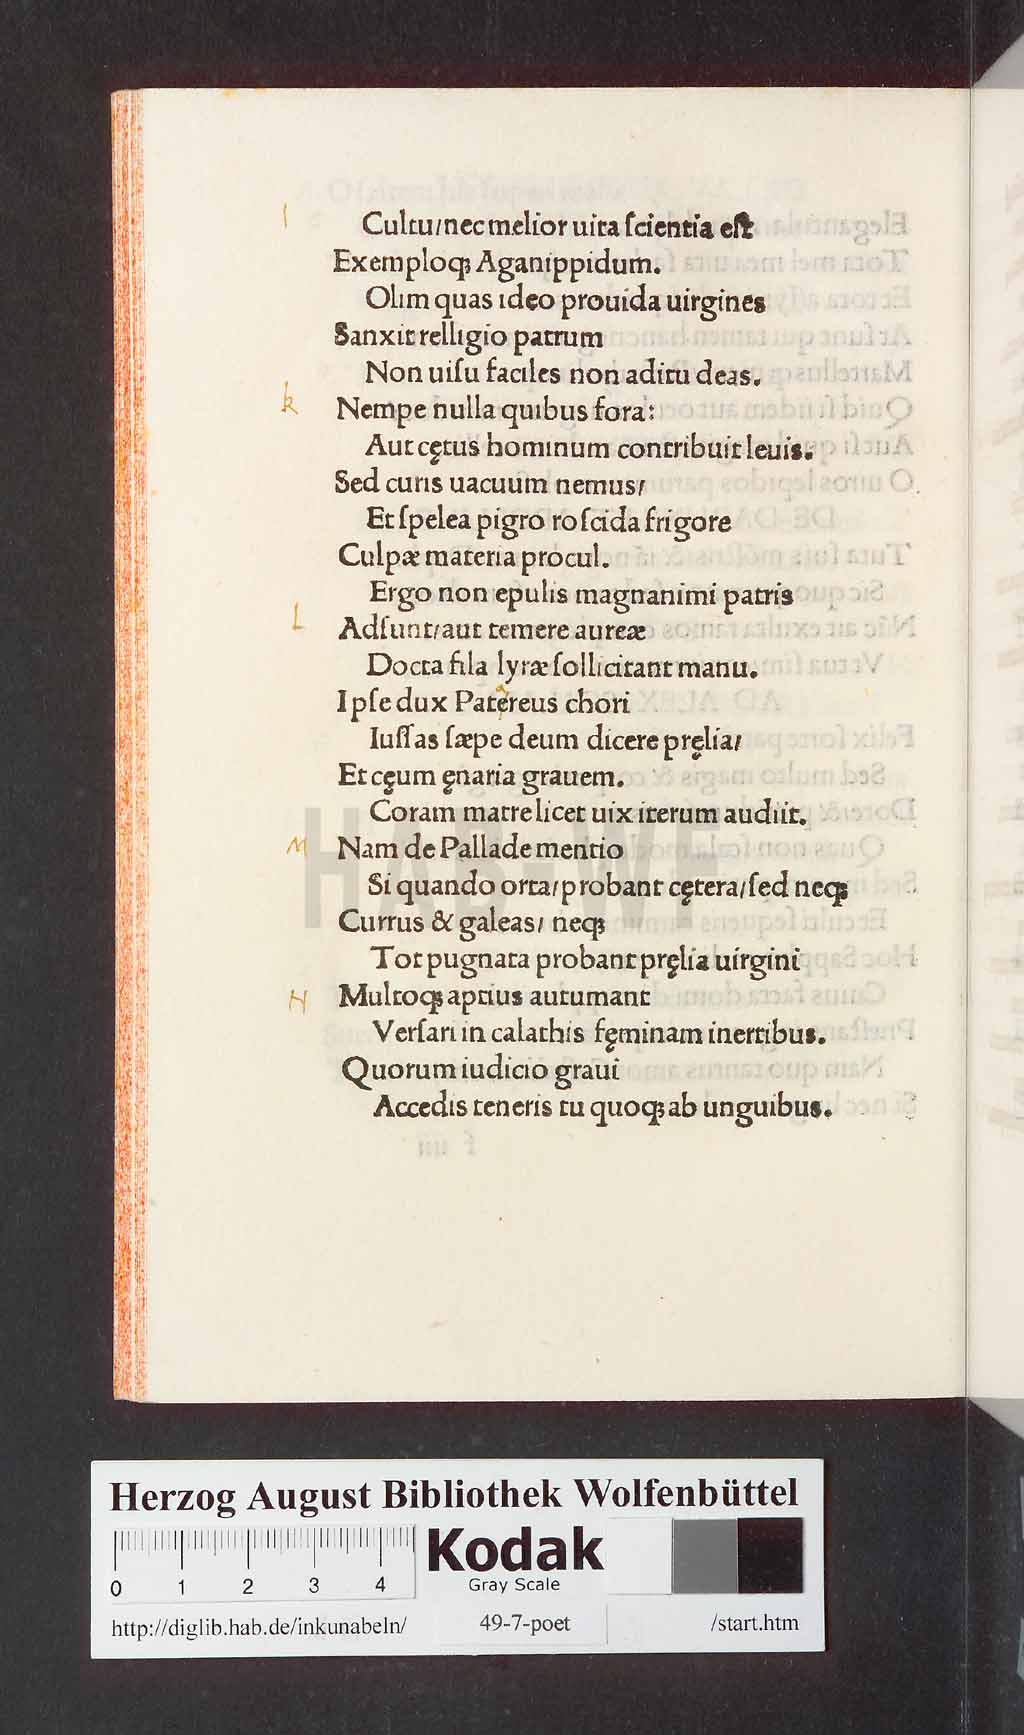 Cultu/nec melior uita ſcientia eſt
Exemploqꝫ Aganippidum.
Olim quas ideo prouida uirgines
Sanxit relligio patrum
Non uiſu faciles non aditu deas.
Nempe nulla quibus fora:
Aut cętus hominum contribuit leuis.
Sed curis uacuum nemus/
Et ſpelea pigro roſcida frigore
Culpæ materia procul.
Ergo non epulis magnanimi patris
Adſunt/aut temere aureæ
Docta fila lyræ ſollicitant manu.
Ipſe dux Patereus chori
Iuſſas ſæpe deum dicere pręlia/
Et cęum ęnaria grauem.
Coram matre licet uix iterum audiit.
Nam de Pallade mentio
Si quando orta/probant cętera/ſed neqꝫ
Currus & galeas/ neqꝫ
Tot pugnata probant pręlia uirgini
Multoqꝫ aptius autumant
Verſari in calathis fęminam inertibus.
Quorum iudicio graui
Accedis teneris tu quoqꝫ ab unguibus.
I
k
L
M
N
HAB-WF
Herzog August Bibliothek Wolfenbüttel
0 1 2 3 4
Kodak
Gray Scale
http://diglib.hab.de/inkunabeln/ 49-7-poet /start.htm